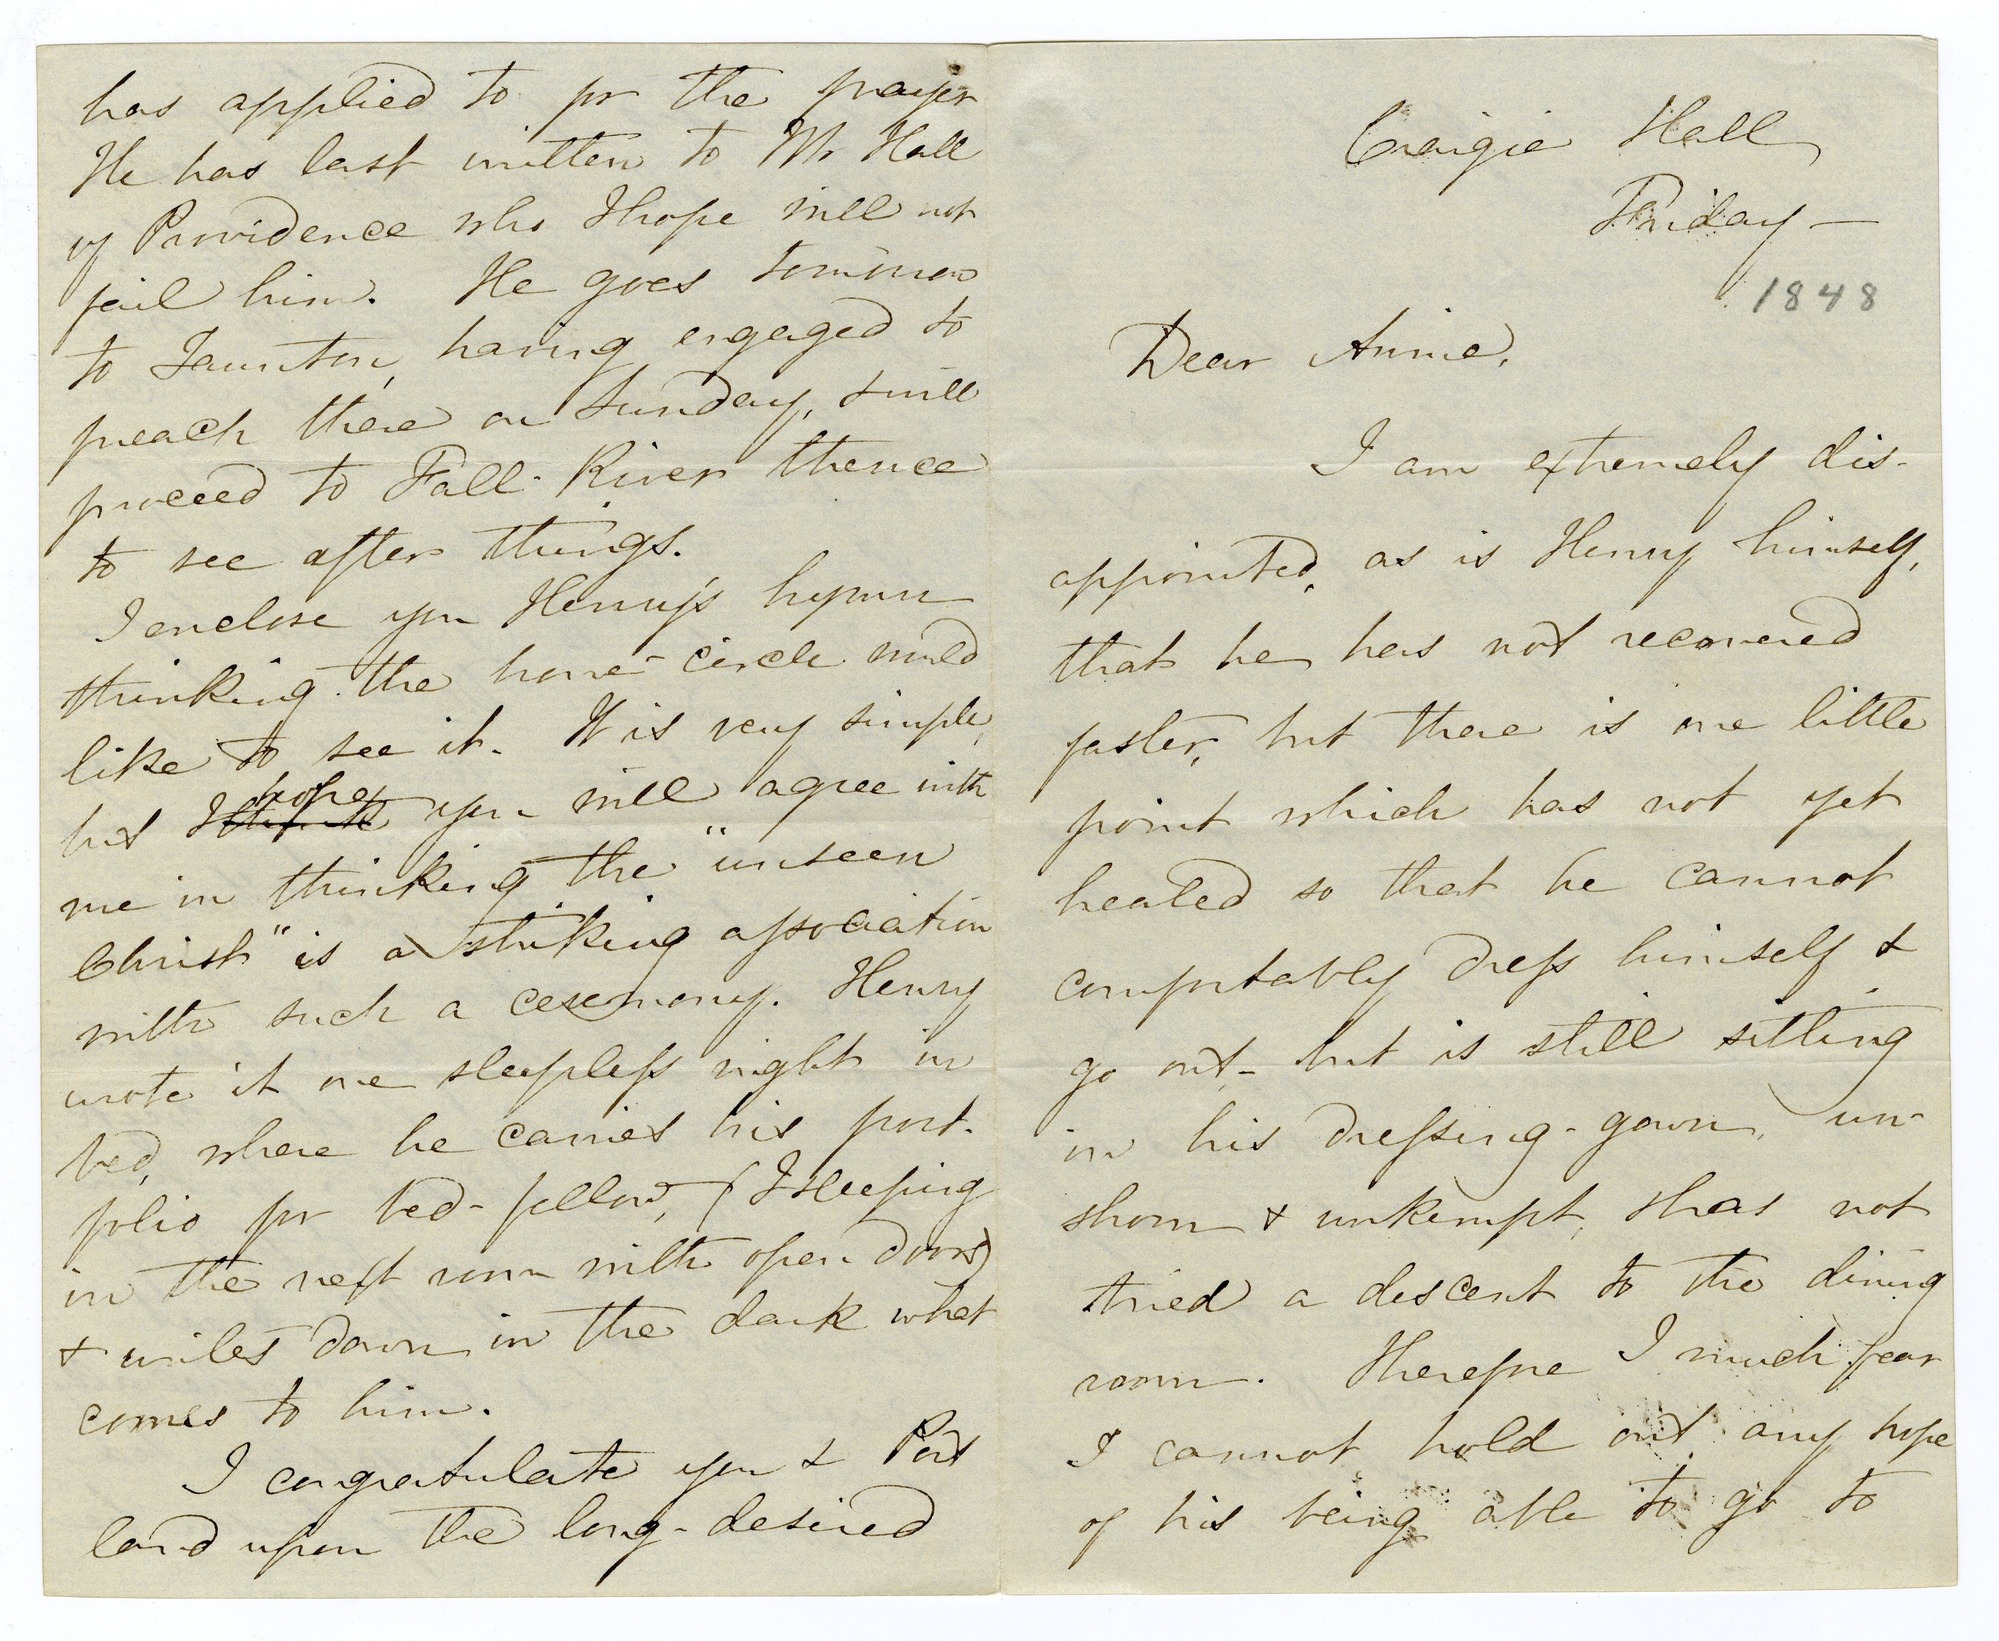 Craigie Hall
Friday —
1848
Dear Annie,
I am extremely dis-
appointed, as is Henry himself,
that he has not recovered
faster, but there is one little
point which has not yet
healed so that he cannot
comfortably dress himself &
go out - but is still sitting
in his dressing-gown, un-
shorn & unkempt, & has not
tried a descent to the dining
room. Therefore I much fear
I cannot hold out any hope
of his being able to go to
has applied to for the prayer
He has last written to Mr Hall
of Providence who I hope will not
fail him. He goes tomorrow
to Taunton, having engaged to
preach there on Sunday, & will
proceed to Fall-River thence
to see after things.
I enclose you Henry's hymn
thinking the home-circle would
like to see it. It is very simple,
hope
but I think you will agree with
me in thinking the "unseen
Christ" is a striking association
with such a ceremony. Henry
wrote it one sleepless night in
bed, where he carries his port-
folio for bed-fellow, (I sleeping
in the next room with open doors)
& writes down in the dark what
comes to him.
I congratulate you & Port
land upon the long-desired